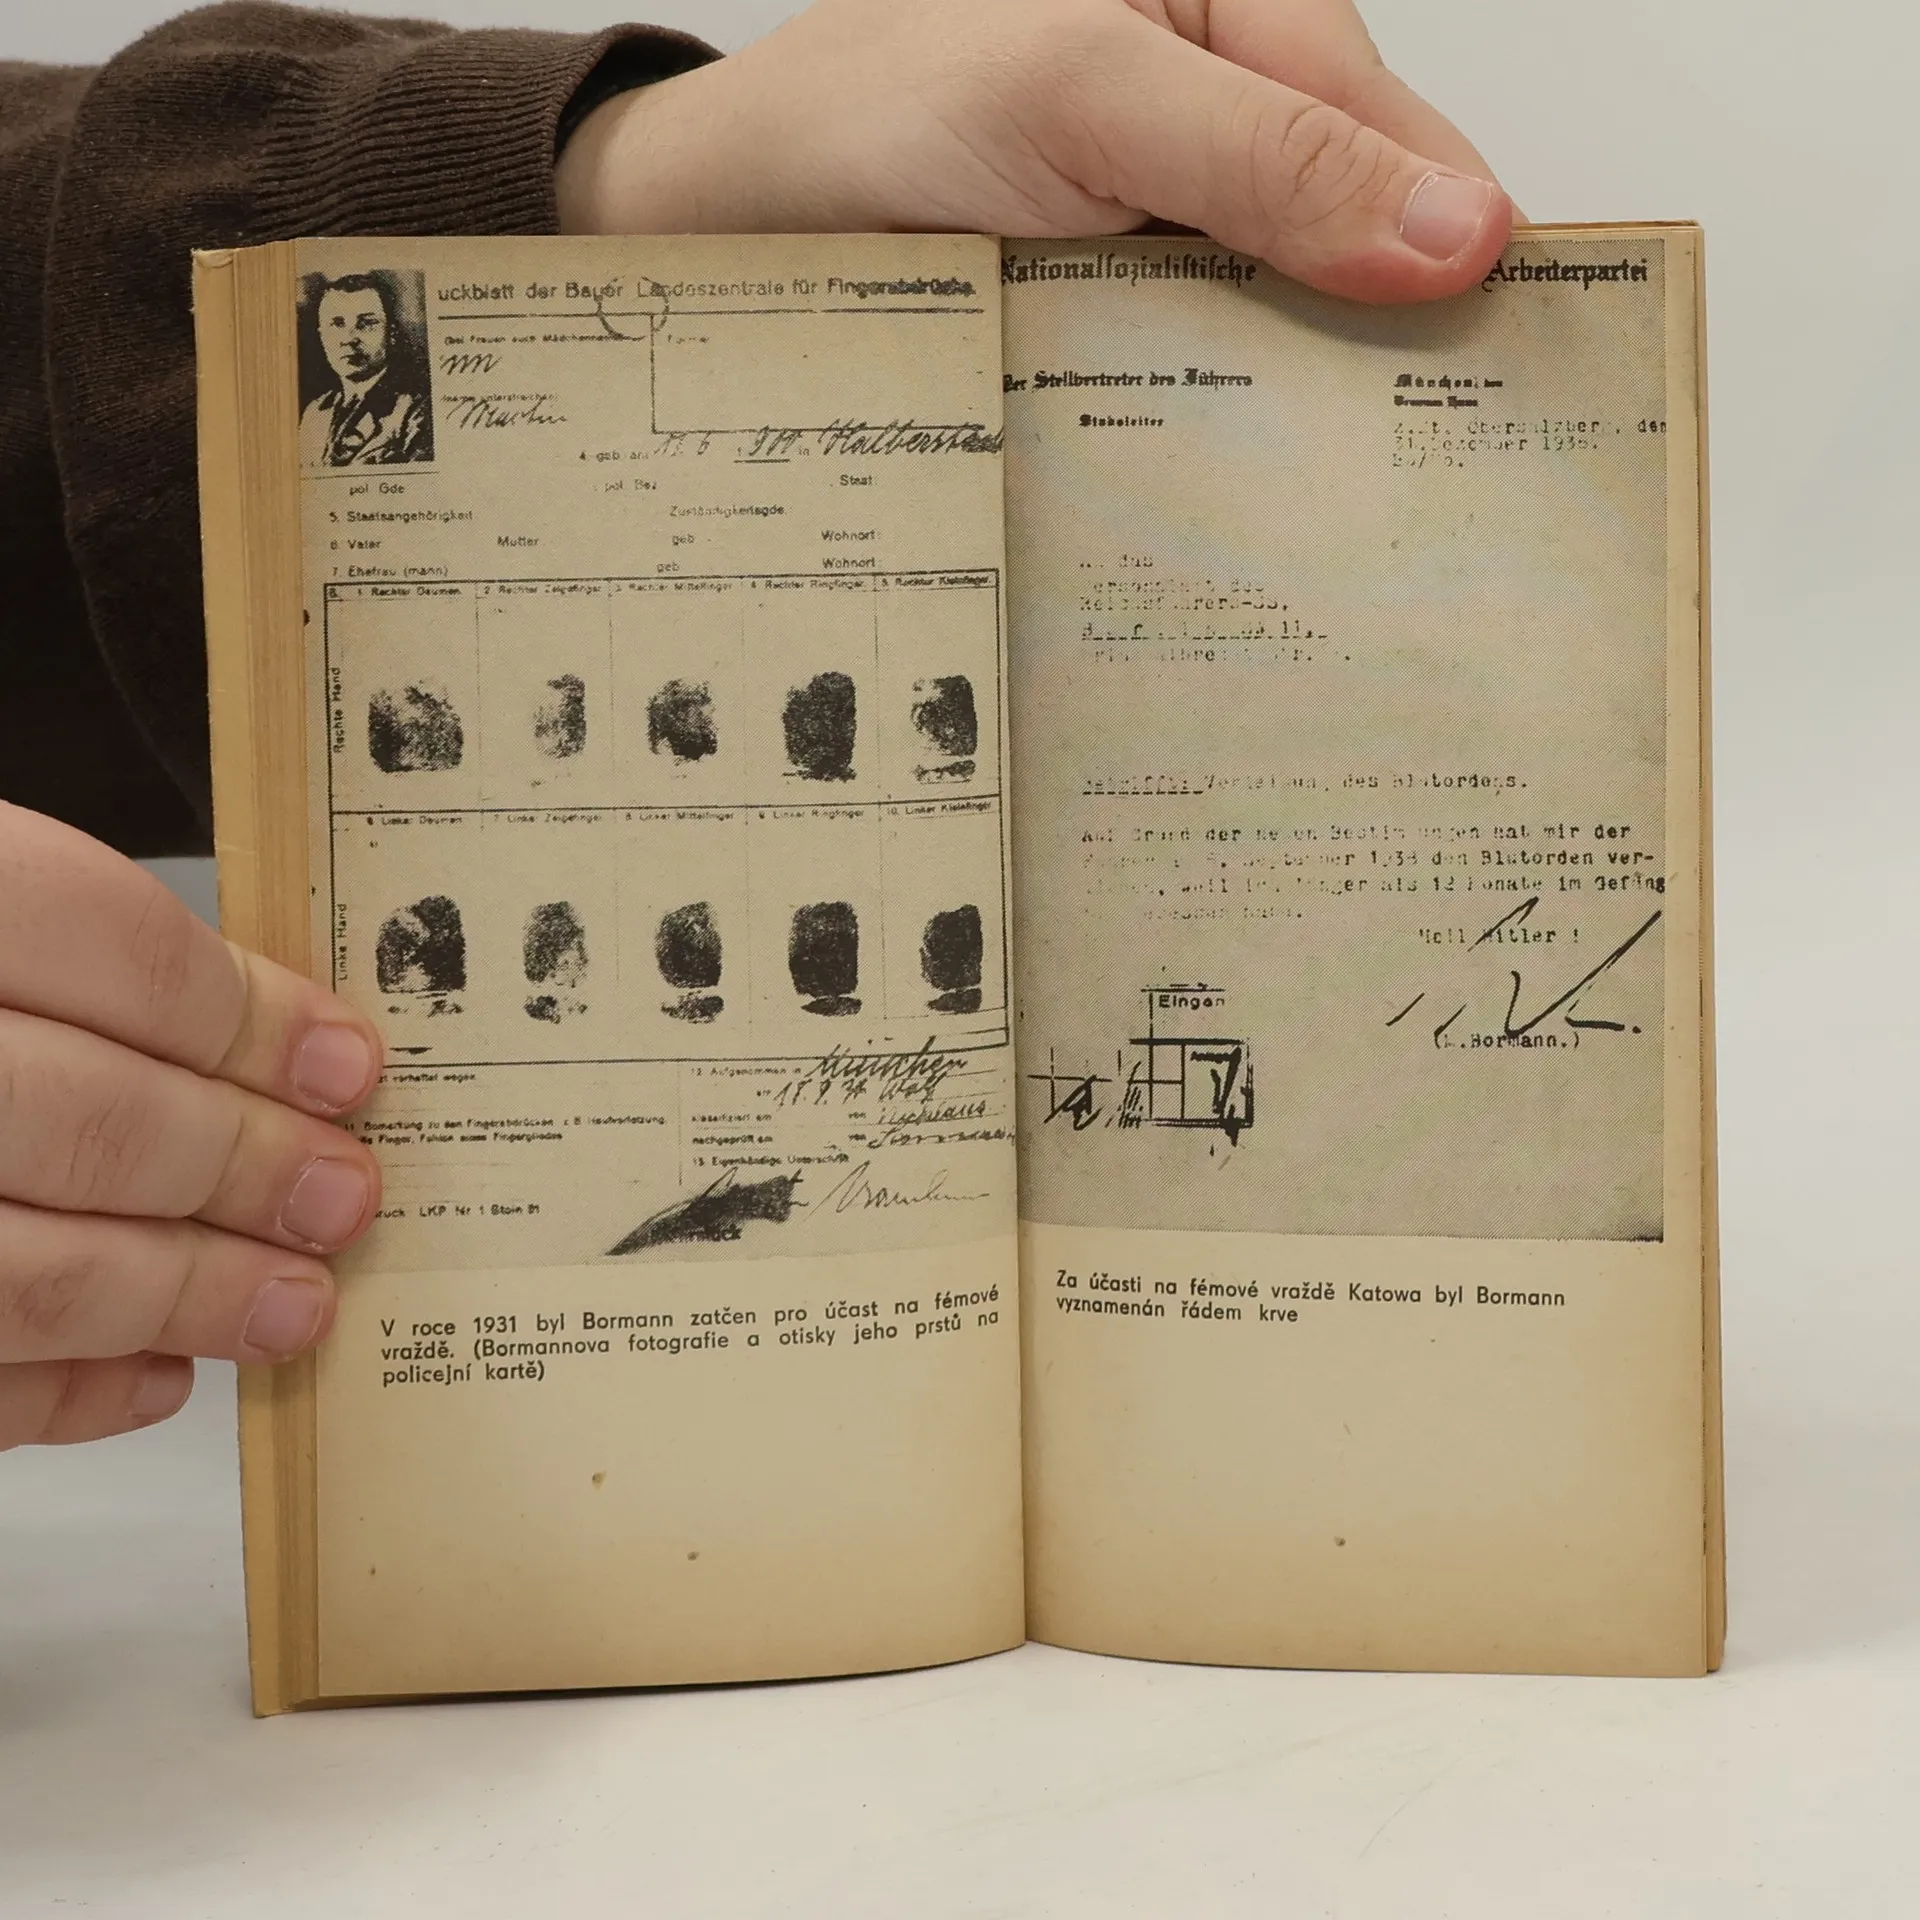 uckblatt der Bayer Landeszentrale für Fingerabdrücke.
(bei Frauen auch Mädchenname)
nn
Martin
4. geb. am 17. 6. 1900 in Halberstadt
pol Gde pol. Bez Staat
5. Staatsangehörigkeit Zuständigkeitsgde.
6. Vater Mutter geb Wohnort:
7. Ehefrau (mann) geb Wohnort:
8. 1. Rechter Daumen. 2 Rechter Zeigefinger 3 Rechter Mittelfinger 4 Rechter Ringfinger. 5. Rechter Kleinfinger.
Rechte Hand
6 Linker Daumen 7 Linker Zeigefinger 8 Linker Mittelfinger 9. Linker Ringfinger 10. Linker Kleinfinger
Linke Hand
zt verhaftet wegen
12. Aufgenommen in München
am 18. 9. 31
klassifiziert am von
nachgeprüft am von
11. Bemerkung zu den Fingerabdrücken z B Hautverletzung,
Finger, Fehlen eines Fingergliedes
13. Eigenhändige Unterschrift
ruck LKP Nr 1 Stoin 81
V roce 1931 byl Bormann zatčen pro účast na fémové
vraždě. (Bormannova fotografie a otisky jeho prstů na
policejní kartě)
Nationalsozialistische Arbeiterpartei
Der Stellvertreter des Führers
Stabsleiter
München, den
Braunes Haus
z.Zt. Obersalzberg, den
31.Dezember 1938.
An das
Personalamt des
Reichsführers-SS,
Betrifft: Verleihung des Blutordens.
Auf Grund der neuen Bestimmungen hat mir der
September 1938 den Blutorden ver-
liehen, weil ich länger als 12 Monate im Gefäng
Heil Hitler !
(M.Bormann.)
Eingan
Za účasti na fémové vraždě Katowa byl Bormann
vyznamenán řádem krve